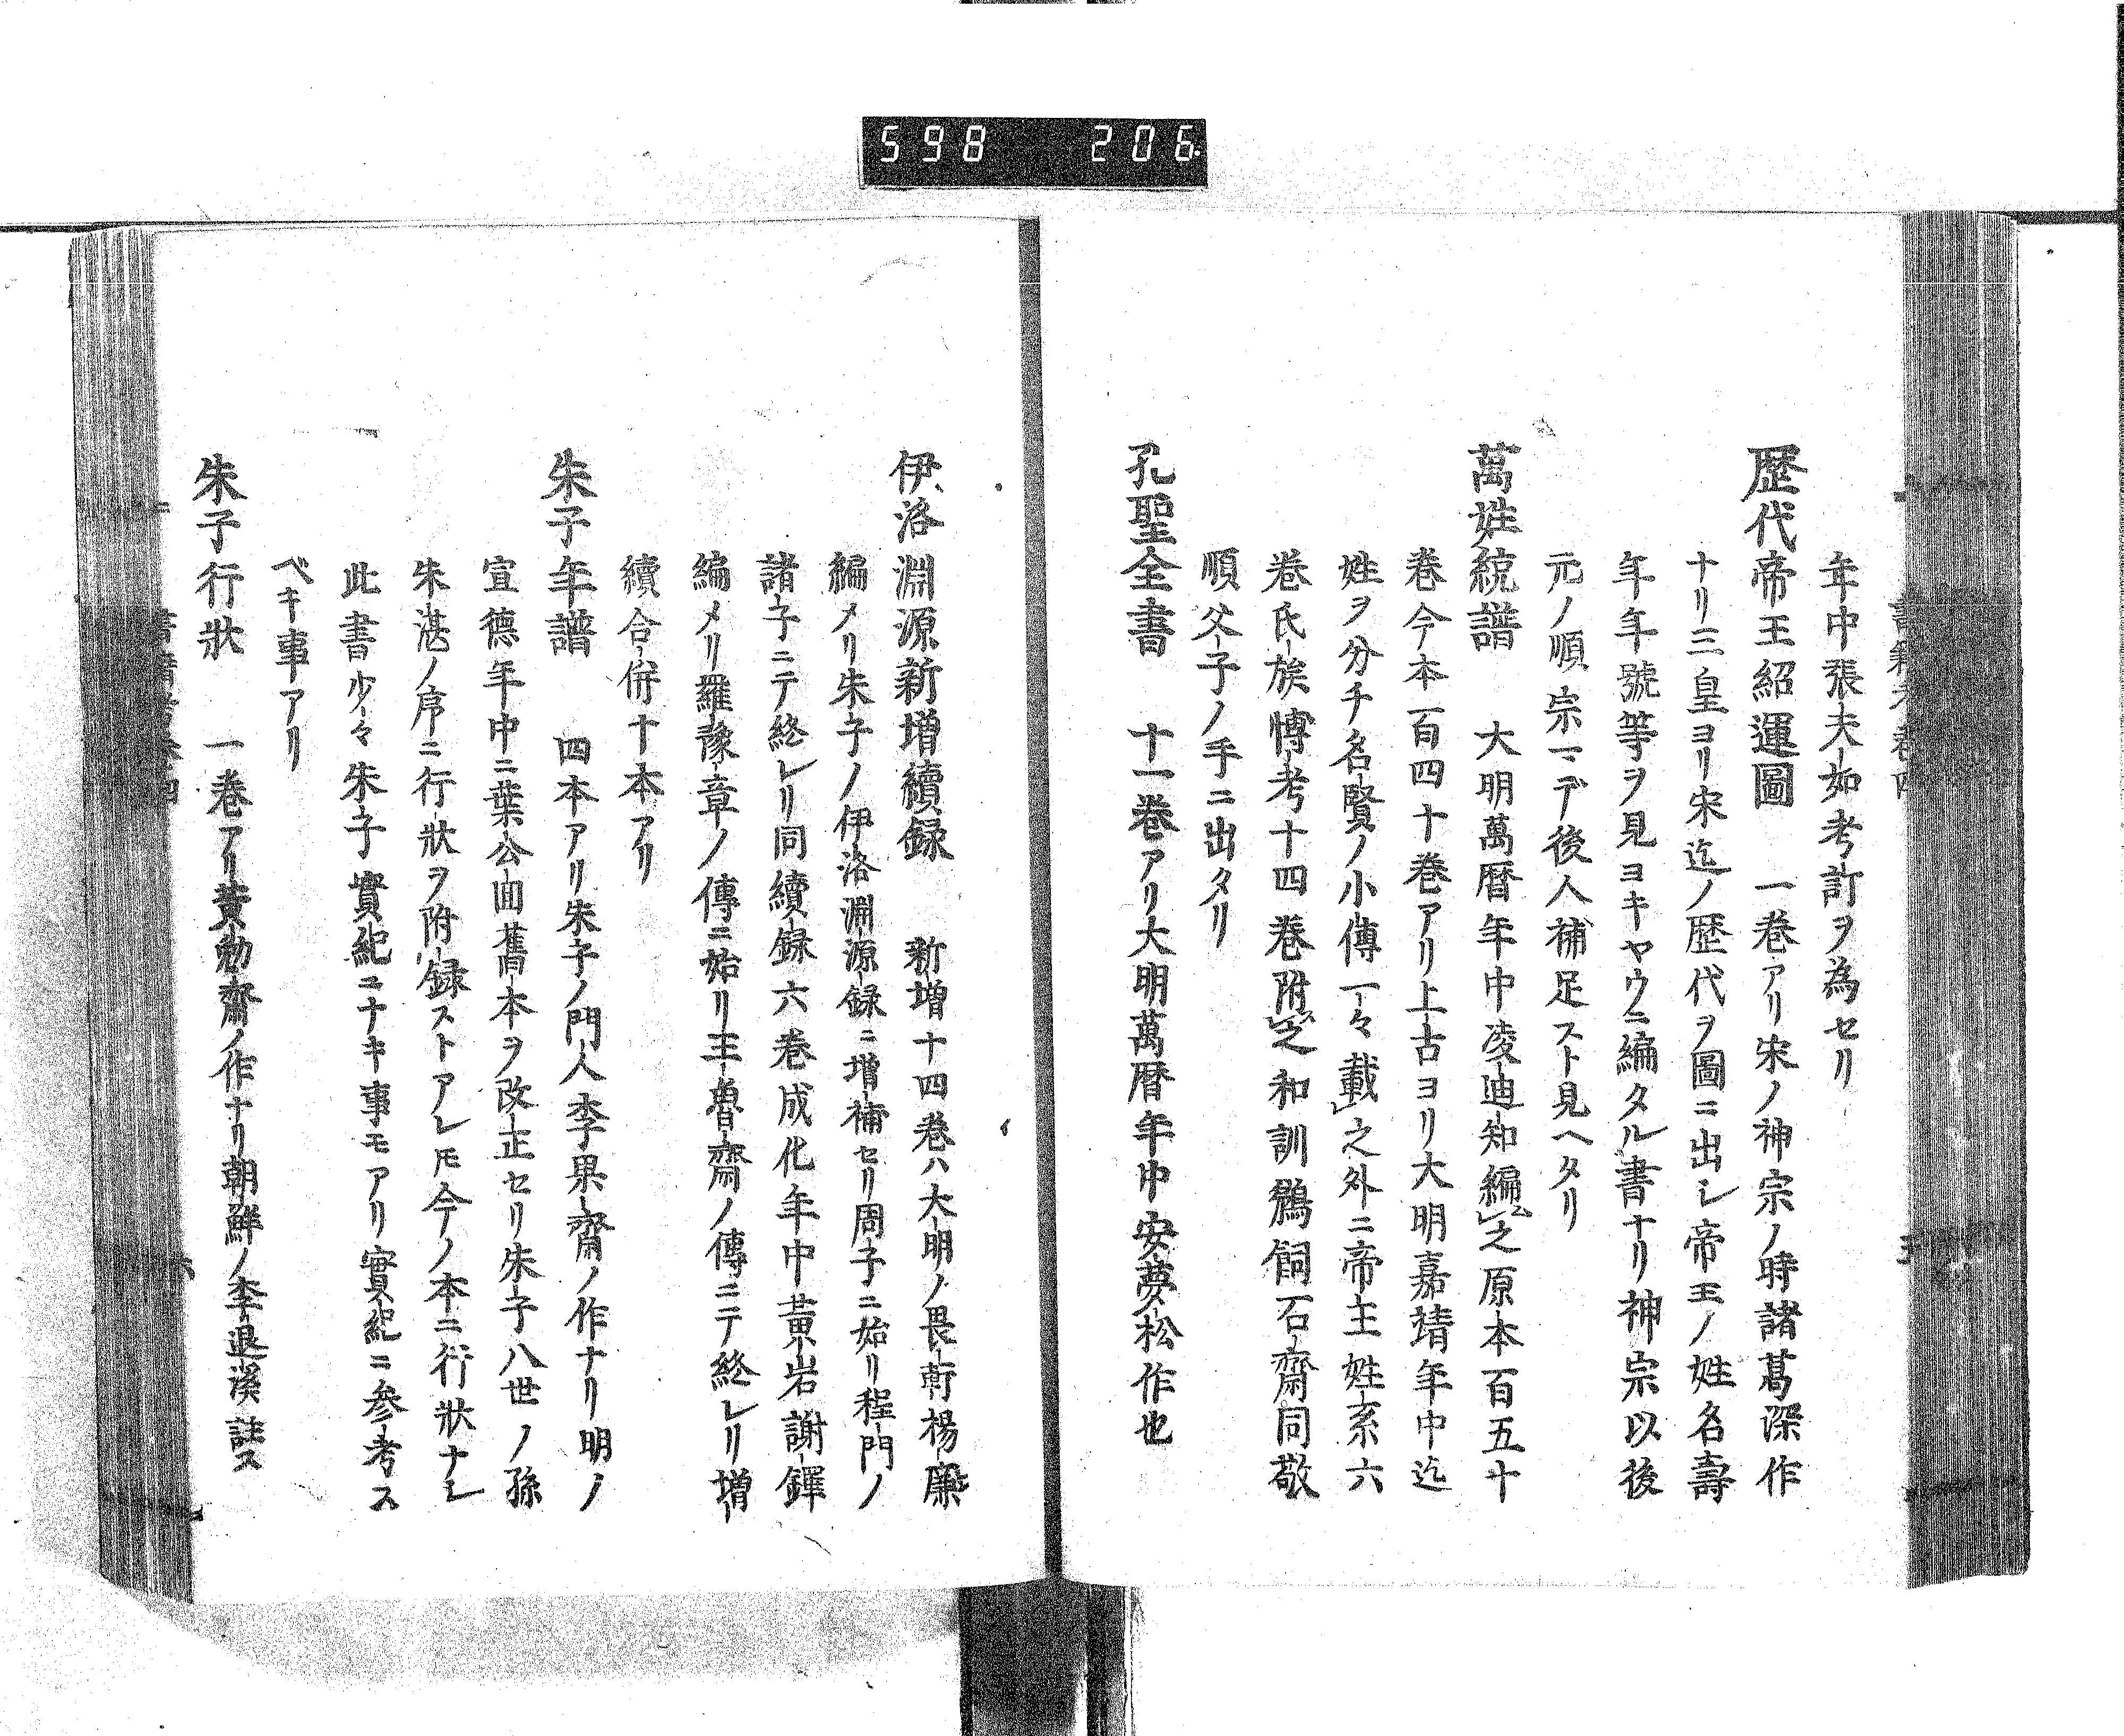 598 206.
年中張夫如考訂ヲ為セリ
歴代帝王紹運圖 一巻アリ宋ノ神宗ノ時諸葛深作
ナリ三皇ヨリ宋迄ノ歴代ヲ圖ニ出シ帝王ノ姓名壽
年年號等ヲ見ヨキヤウニ編タル書ナリ神宗以後
元ノ順宗マデ後人補足スト見ヘタリ
萬姓統譜 大明萬暦年中凌迪知編之原本百五十
巻今本一百四十巻アリ上古ヨリ大明嘉靖年中迄
姓ヲ分チ名賢ノ小傳一々載之外ニ帝主姓系六
巻氏族博考十四巻附之和訓鵜飼石齋同敬
順父子ノ手ニ出タリ
孔聖全書 十一巻アリ大明萬暦年中安夢松作也
伊洛淵源新増續録 新増十四巻ハ大明ノ畏軒楊廉
編メリ朱子ノ伊洛淵源録ニ増補セリ周子ニ始リ程門ノ
諸子ニテ終レリ同續録六巻成化年中黄岩謝鐸
編メリ羅豫章ノ傳ニ始リ王魯齋ノ傳ニテ終レリ増
續合併十本アリ
朱子年譜 四本アリ朱子ノ門人李果齋ノ作ナリ明ノ
宣徳年中ニ葉公回舊本ヲ改正セリ朱子八世ノ孫
朱湛ノ序ニ行狀ヲ附録ストアレ𪜈今ノ本ニ行狀ナシ
此書少々朱子實紀ニナキ事モアリ實紀ニ参考ス
ベキ事アリ
朱子行狀 一巻アリ黄勉齋ノ作ナリ朝鮮ノ李退溪註ス